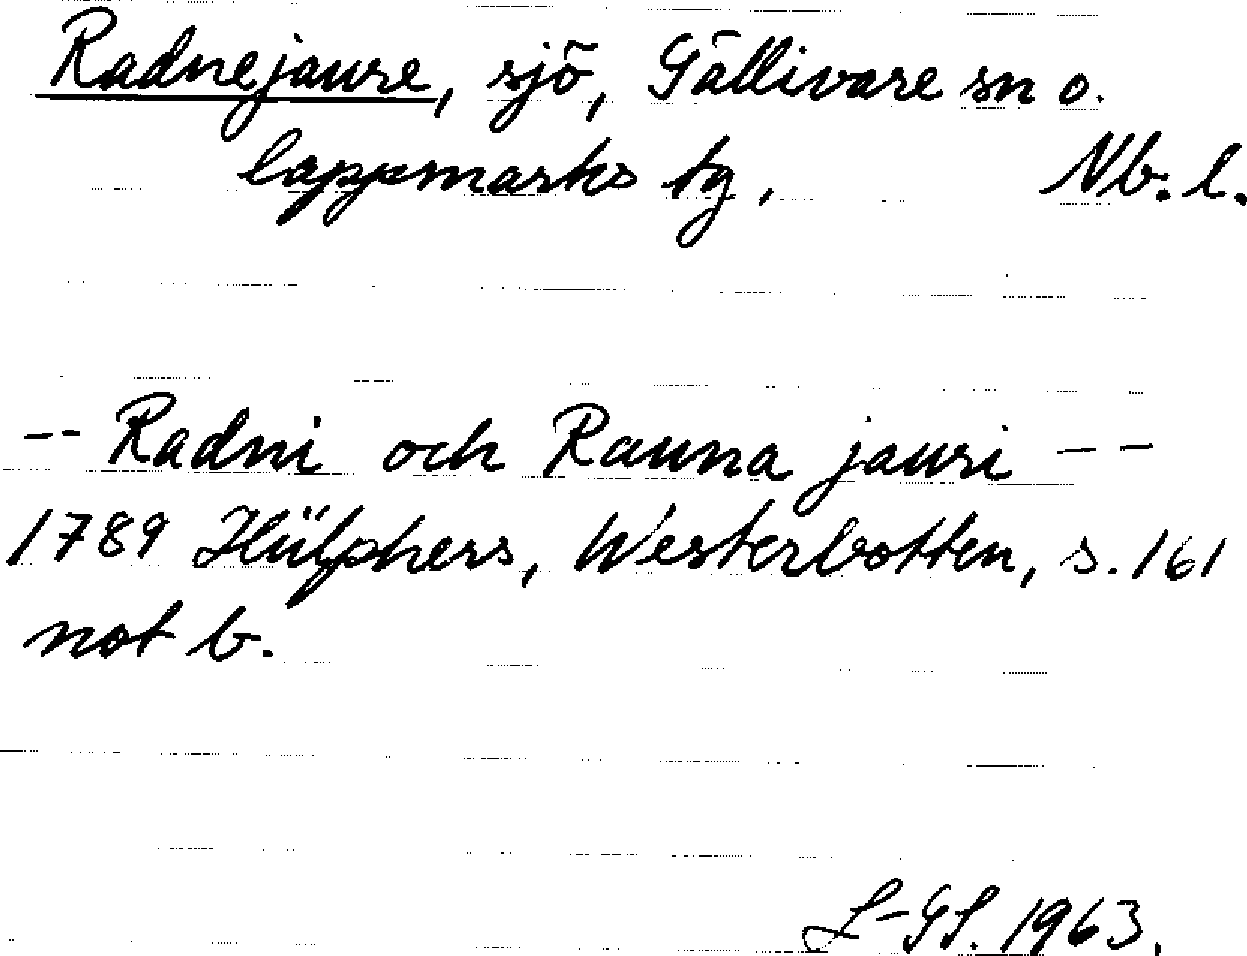 Radnejaure, sjö, Gällivare sn o.
lappmarks tg, Nb. l.
-- Radni och Rauna jauri --
1789 Hülphers, Westerbotten, s. 161
not b.
L-GL. 1963.